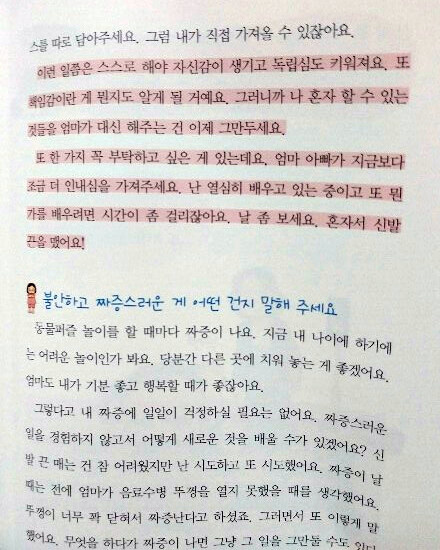 스를 따로 담아주세요. 그럼 내가 직접 가져올 수 있잖아요.
이런 일쯤은 스스로 해야 자신감이 생기고 독립심도 키워져요. 또
책임감이란 게 뭔지도 알게 될 거예요. 그러니까 나 혼자 할 수 있는
것들을 엄마가 대신 해주는 건 이제 그만두세요.
또 한 가지 꼭 부탁하고 싶은 게 있는데요. 엄마 아빠가 지금보다
조금 더 인내심을 가져주세요. 난 열심히 배우고 있는 중이고 또 뭔
가를 배우려면 시간이 좀 걸리잖아요. 날 좀 보세요. 혼자서 신발
끈을 맸어요!
불안하고 짜증스러운 게 어떤 건지 말해 주세요
동물퍼즐 놀이를 할 때마다 짜증이 나요. 지금 내 나이에 하기에
는 어려운 놀이인가 봐요. 당분간 다른 곳에 치워 놓는 게 좋겠어요.
엄마도 내가 기분 좋고 행복할 때가 좋잖아요.
그렇다고 내 짜증에 일일이 걱정하실 필요는 없어요. 짜증스러운
일을 경험하지 않고서 어떻게 새로운 것을 배울 수가 있겠어요? 신
발 끈 매는 건 참 어려웠지만 난 시도하고 또 시도했어요. 짜증이 날
때는 전에 엄마가 음료수병 뚜껑을 열지 못했을 때를 생각했어요.
뚜껑이 너무 꽉 닫혀서 짜증난다고 하셨죠. 그러면서 또 이렇게 말
했어요. 무엇을 하다가 짜증이 나면 그냥 그 일을 그만둘 수도 있다